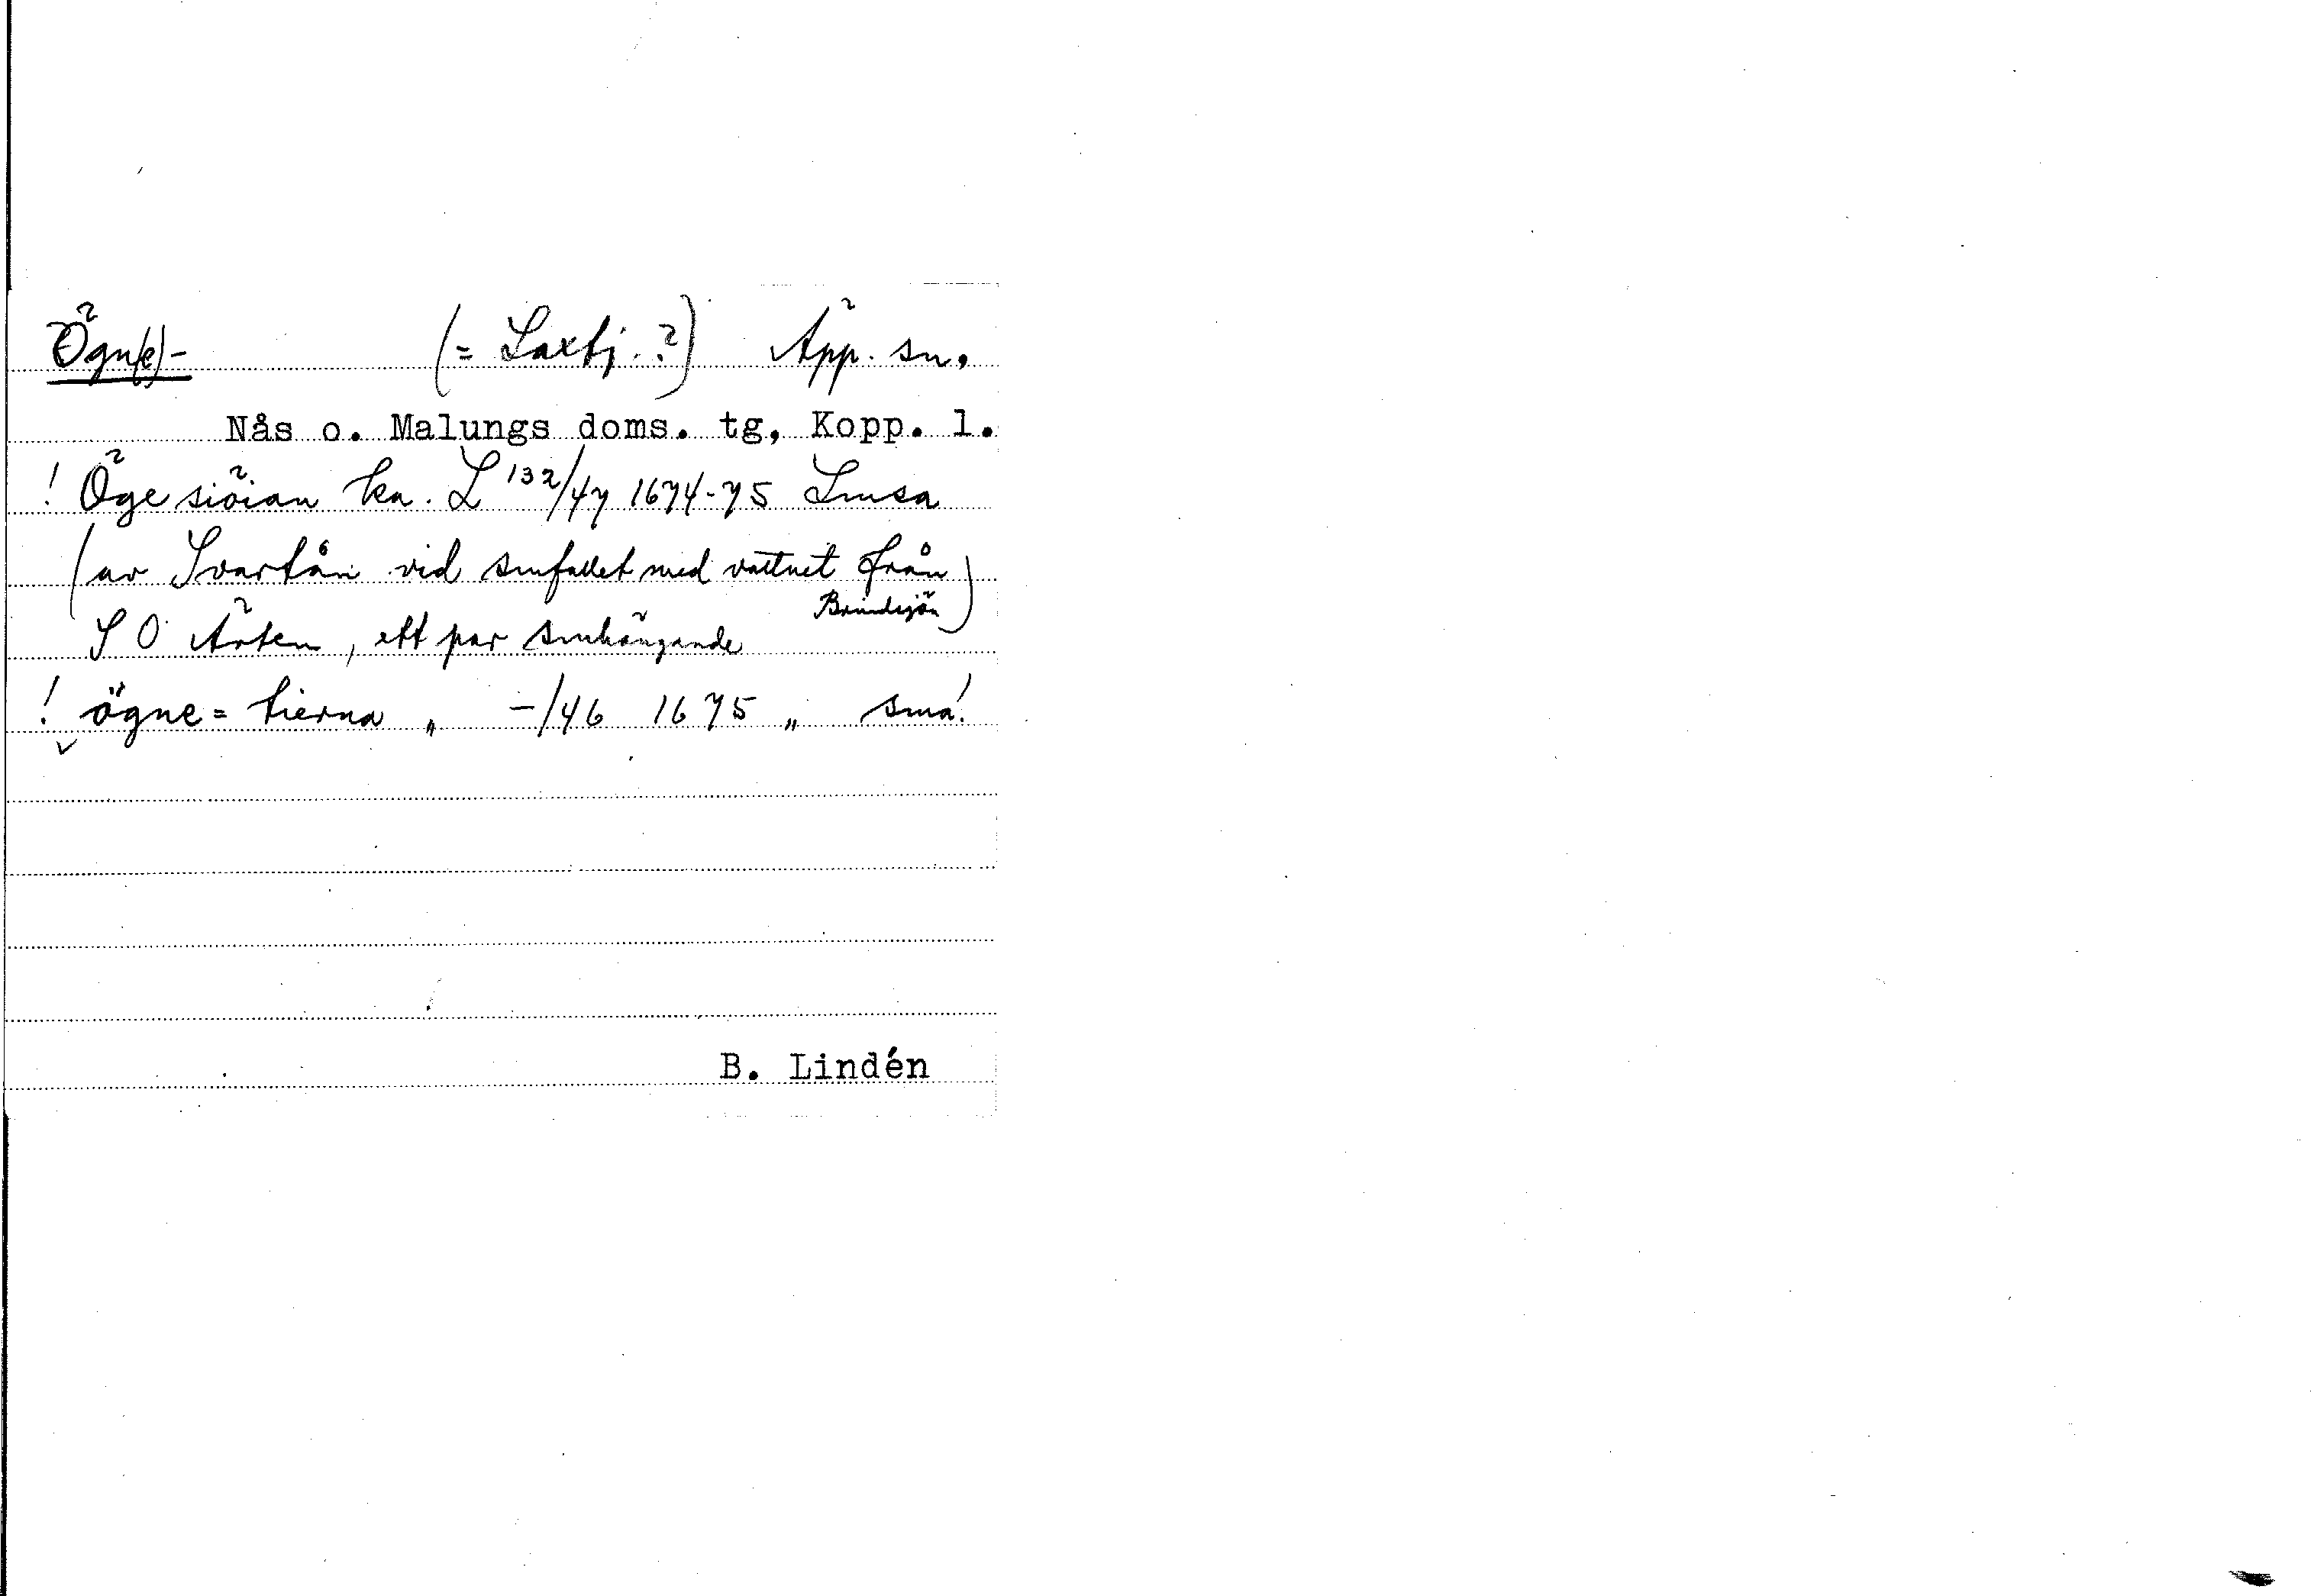 Ögn(e)- (= Laxtj. ?) Äpp. sn.
Nås o. Malungs doms. tg, Kopp. l.
! Öge siöian ka. L 132/47 1674-75 Lmsa
(av Svartån vid smfallet med vattnet från Brindsjön)
S O Ärten, ett par smhängande
! ögne= tierna „ -/46 1675 „ små!
B. Lindén